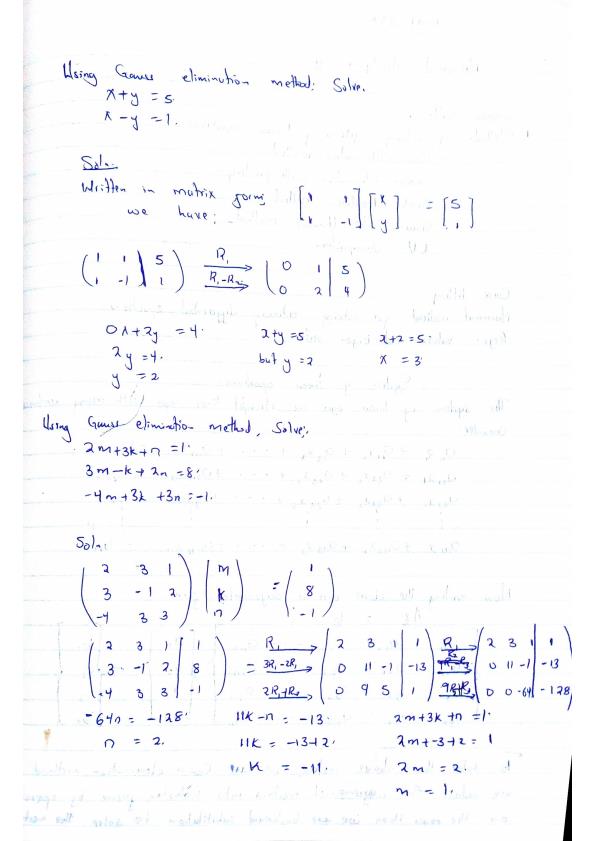 Using Gauss elimination method; Solve.
x+y = 5.
x - y = 1.
Soln.
Written in matrix form; [1 1] [x] = [5]
we have: [1 -1] [y] [1]
(1 1 | 5) R₁ (0 1 | 5)
(1 -1 | 1) R₁-R₂ (0 2 | 4)
0x+2y = 4. x+y = 5 x+2 = 5.
2y = 4. but y = 2 x = 3
y = 2
Using Gauss elimination method, Solve;
2m+3k+n = 1.
3m-k+2n = 8.
-4m+3k+3n = -1.
Soln:
(2 3 1) (m) (1)
(3 -1 2) (k) = (8)
(-4 3 3) (n) (-1)
(2 3 1 | 1) R₁ (2 3 1 | 1) R₁ (2 3 1 | 1)
(3 -1 2 | 8) = 3R₁-2R₂ (0 11 -1 | -13) (0 11 -1 | -13)
(-4 3 3 | -1) 2R₁+R₃ (0 9 5 | 1) (0 0 -64 | -128)
-64n = -128. 11k-n = -13. 2m+3k+n = 1.
n = 2. 11k = -13+2. 2m+-3+2 = 1
k = -11. 2m = 2.
m = 1.